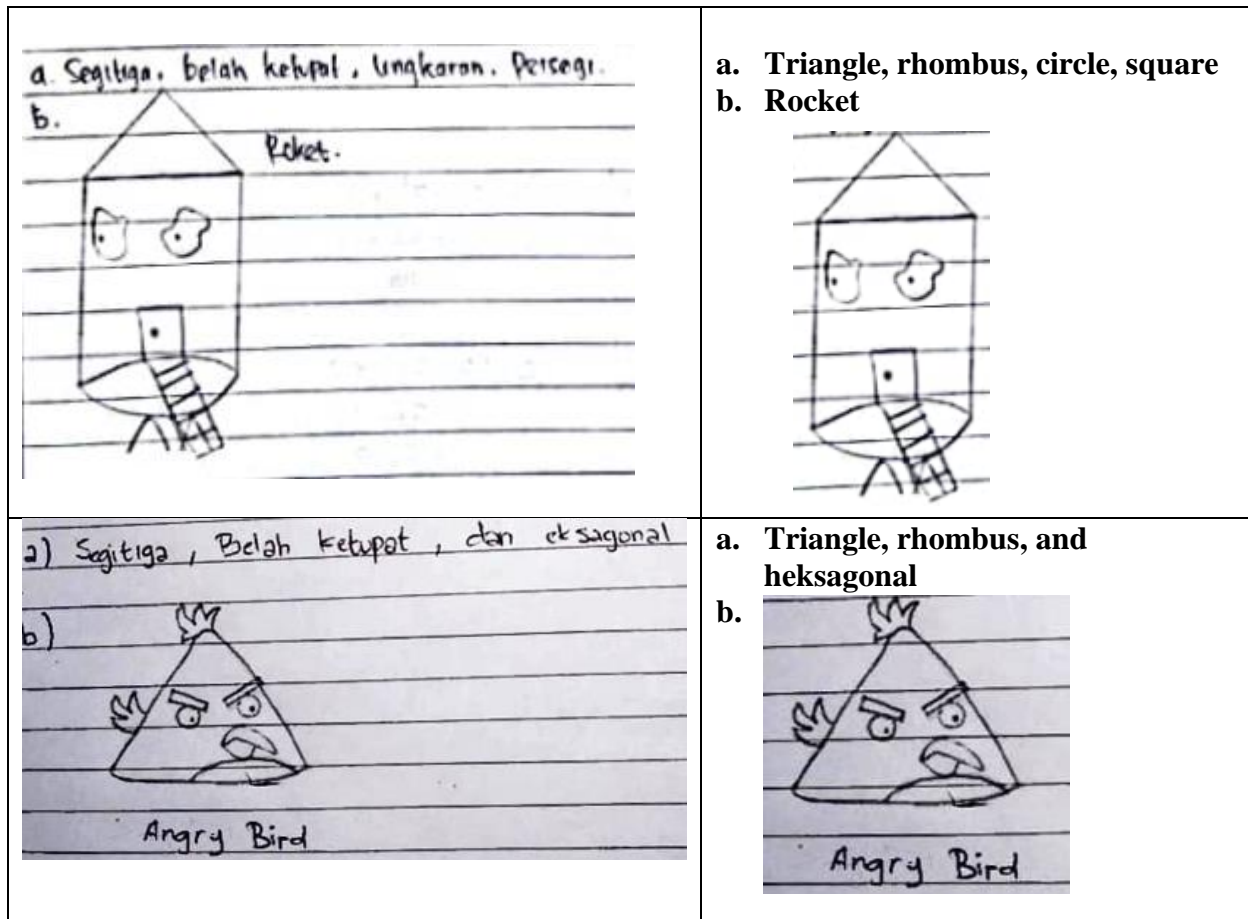 a. Segitiga, belah ketupat, lingkaran, Persegi.
b.
Roket.
a. Triangle, rhombus, circle, square
b. Rocket
a) Segitiga, Belah ketupat, dan eksagonal
b)
Angry Bird
a. Triangle, rhombus, and
heksagonal
b.
Angry Bird